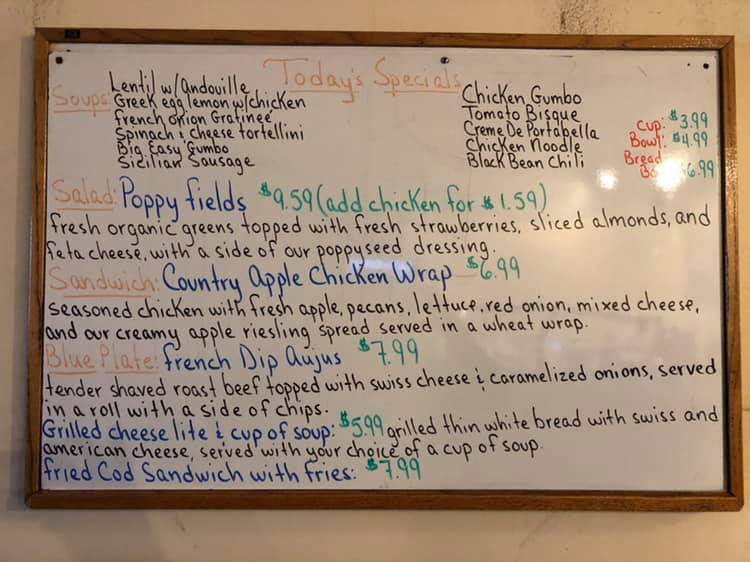 Today's Specials
Soups:
Lentil w/Andouille
Greek egg lemon w/chicken
french onion Gratinee
Spinach & cheese tortellini
Big Easy Gumbo
Sicilian Sausage
Chicken Gumbo
Tomato Bisque
Creme De Portabella
Chicken Noodle
Black Bean Chili
Cup: $3.99
Bowl: $4.99
Bread
$6.99
Salad: Poppy fields $9.59 (add chicken for $1.59)
fresh organic greens topped with fresh strawberries, sliced almonds, and
feta cheese, with a side of our poppyseed dressing.
Sandwich: Country Apple Chicken Wrap $6.99
seasoned chicken with fresh apple, pecans, lettuce, red onion, mixed cheese,
and our creamy apple riesling spread served in a wheat wrap.
Blue Plate: french Dip Aujus $7.99
tender shaved roast beef topped with swiss cheese & caramelized onions, served
in a roll with a side of chips.
Grilled cheese lite & cup of soup: $5.99 grilled thin white bread with swiss and
american cheese, served with your choice of a cup of soup.
fried Cod Sandwich with fries: $7.99